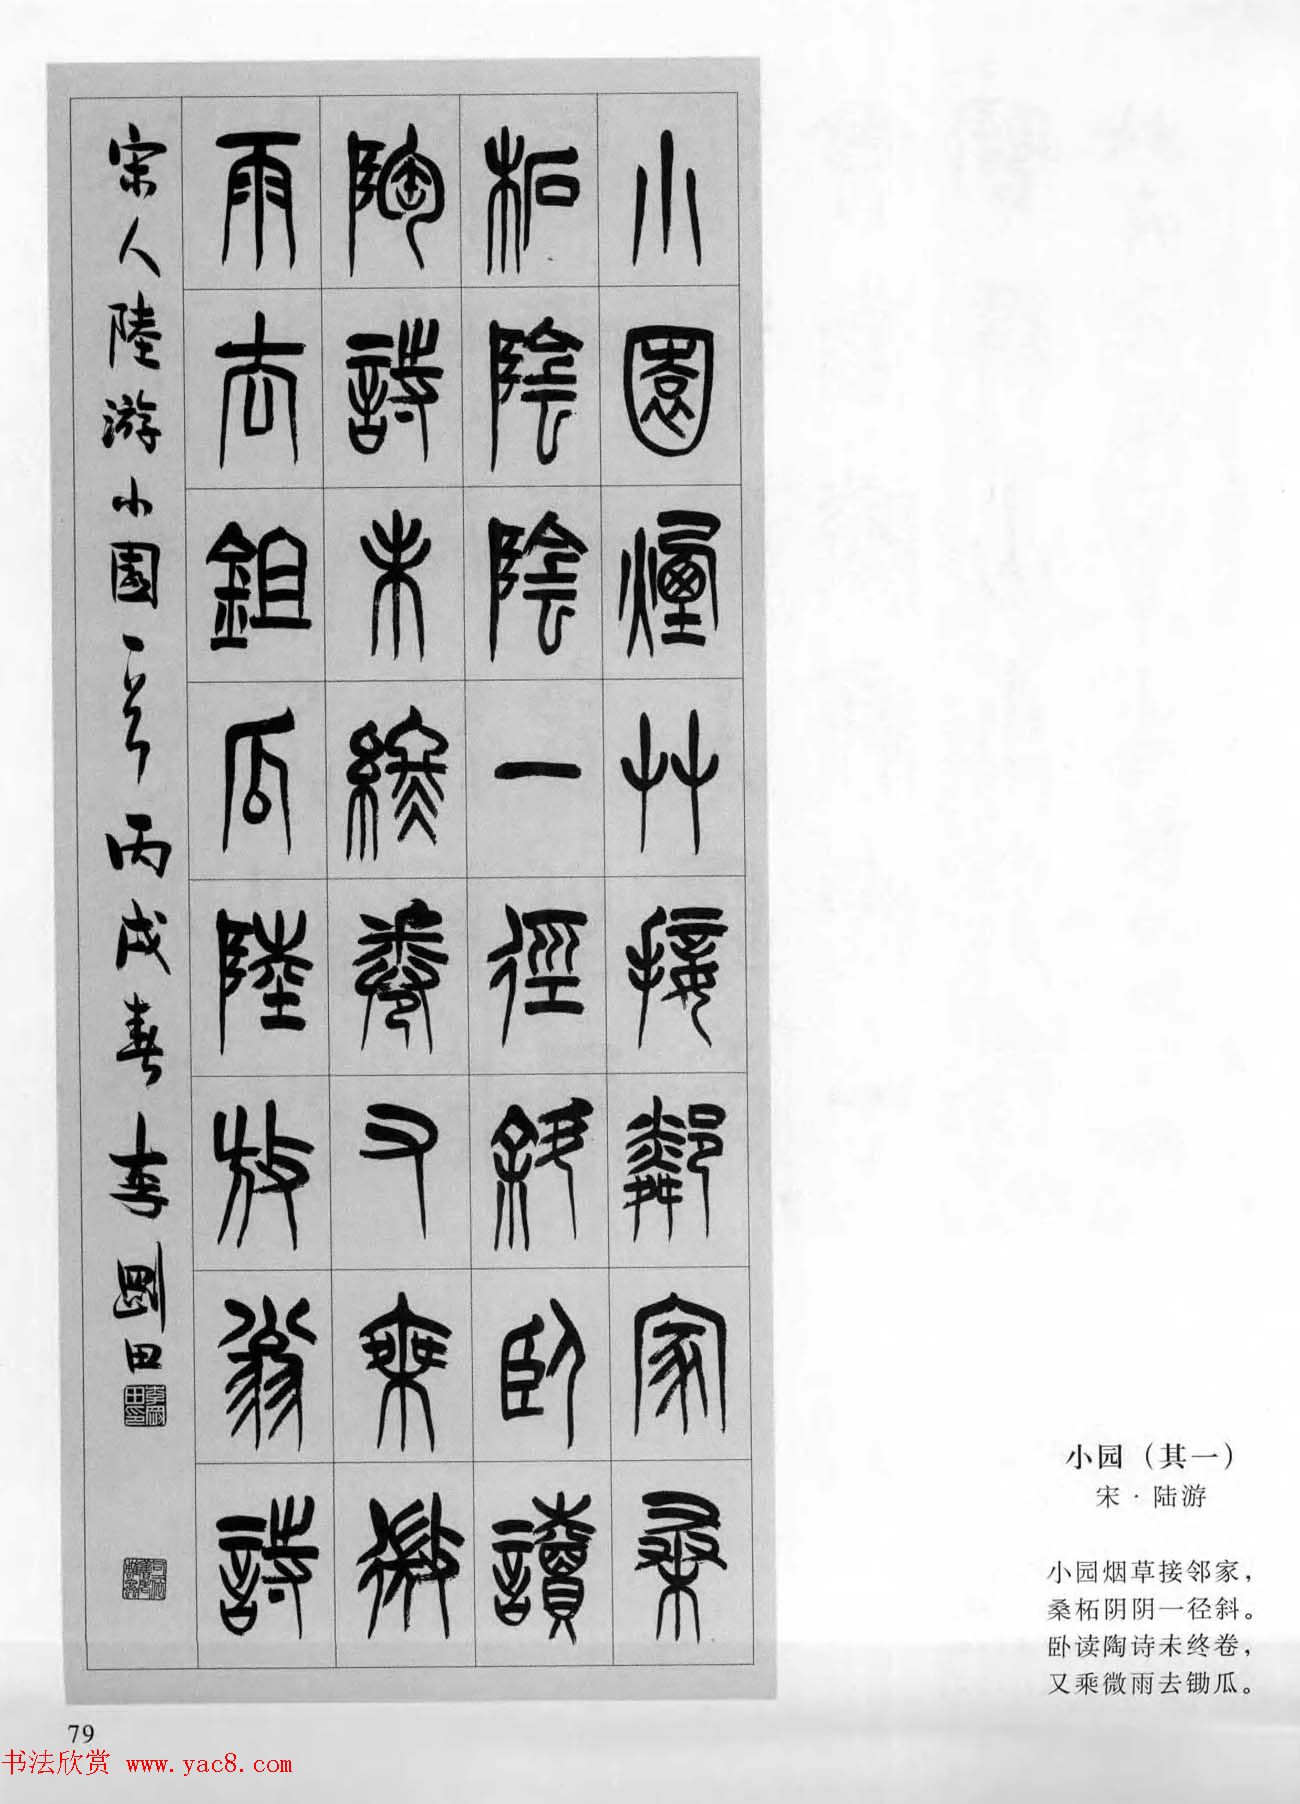 小園煙艸接鄰家桑
柘陰陰一徑斜臥讀
陶詩未終卷又乘微
雨去鉏瓜陸放翁詩
宋人陸游小園一首丙戌春李剛田
李剛田印
小园（其一）
宋·陆游
小园烟草接邻家，
桑柘阴阴一径斜。
卧读陶诗未终卷，
又乘微雨去锄瓜。
79
书法欣赏 www.yac8.com